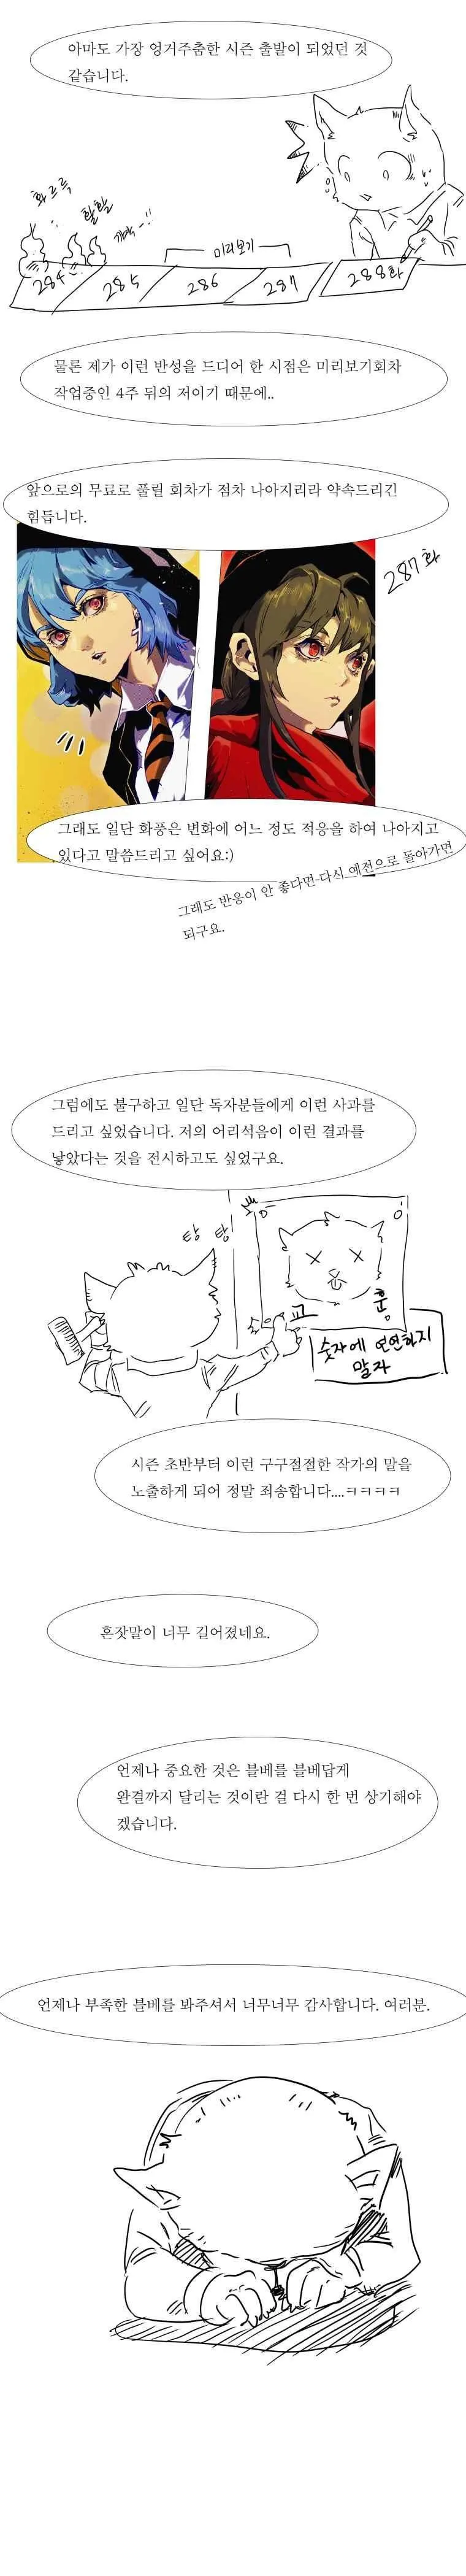 아마도 가장 엉거주춤한 시즌 출발이 되었던 것
같습니다.
화르륵
활활
미리보기
284
285
286
287
288화
물론 제가 이런 반성을 드디어 한 시점은 미리보기회차
작업중인 4주 뒤의 저이기 때문에..
앞으로의 무료로 풀릴 회차가 점차 나아지리라 약속드리긴
힘듭니다.
287화
그래도 일단 화풍은 변화에 어느 정도 적응을 하여 나아지고
있다고 말씀드리고 싶어요:)
그래도 반응이 안 좋다면 다시 예전으로 돌아가면
되구요.
그럼에도 불구하고 일단 독자분들에게 이런 사과를
드리고 싶었습니다. 저의 어리석음이 이런 결과를
낳았다는 것을 전시하고도 싶었구요.
탕 탕
교 훈
숫자에 연연하지
말자
시즌 초반부터 이런 구구절절한 작가의 말을
노출하게 되어 정말 죄송합니다....ㅋㅋㅋㅋ
혼잣말이 너무 길어졌네요.
언제나 중요한 것은 블베를 블베답게
완결까지 달리는 것이란 걸 다시 한 번 상기해야
겠습니다.
언제나 부족한 블베를 봐주셔서 너무너무 감사합니다. 여러분.